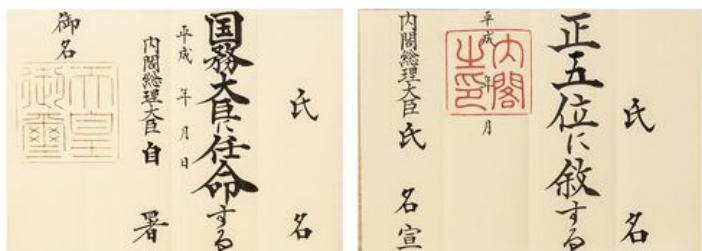 氏名
国務大臣に任命する
平成 年 月 日
内閣総理大臣 自署
御名
天皇御璽
氏名
正五位に叙する
平成 年 月
内閣之印
内閣総理大臣 氏名宣